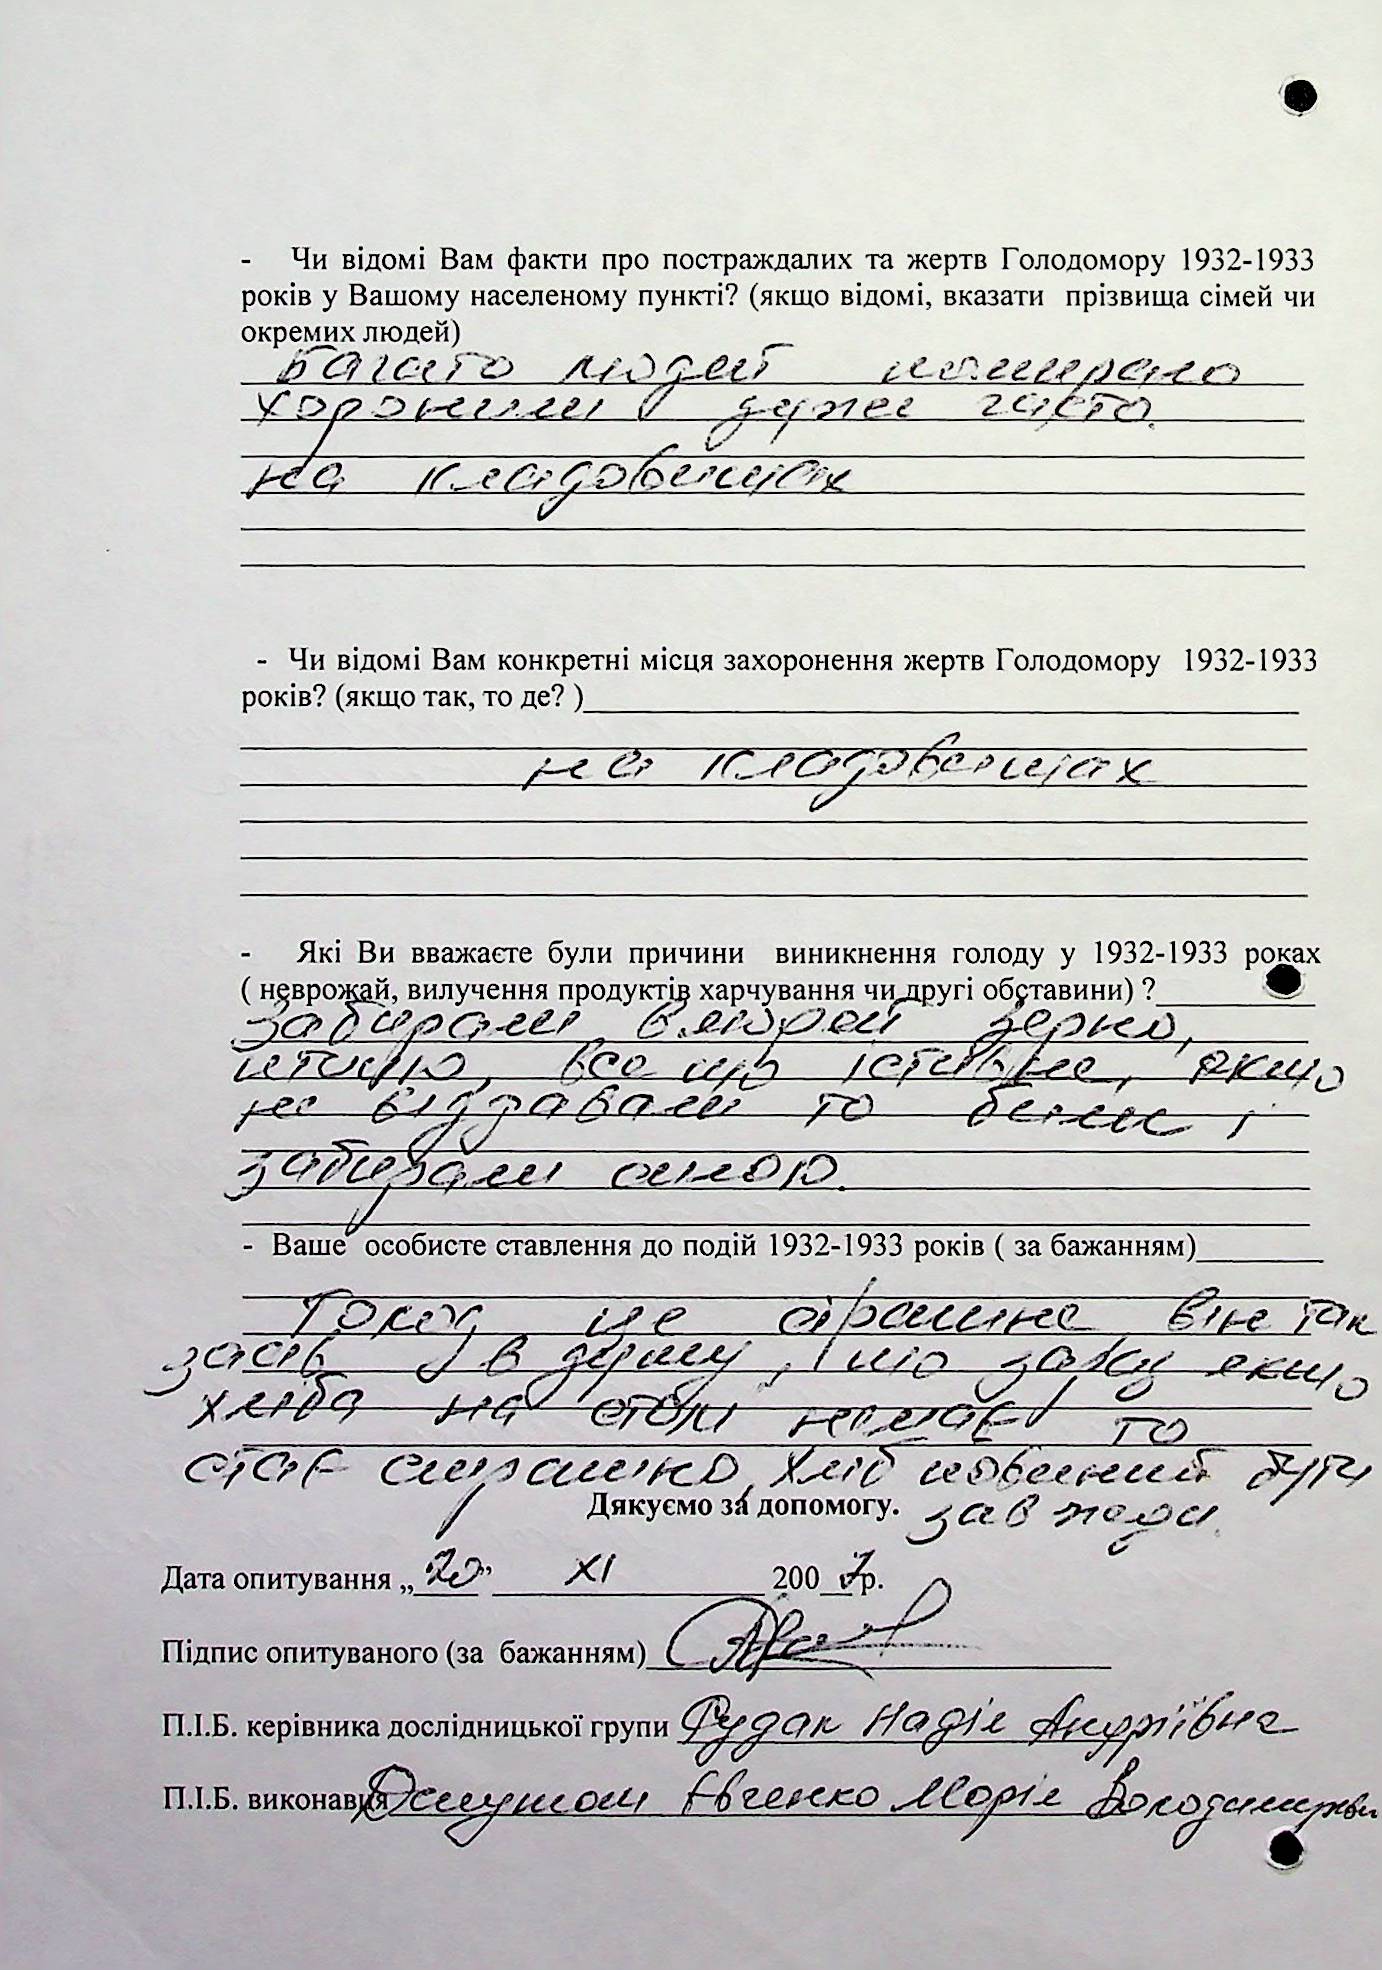 - Чи відомі Вам факти про постраждалих та жертв Голодомору 1932-1933
років у Вашому населеному пункті? (якщо відомі, вказати прізвища сімей чи
окремих людей)
Багато людей помирало
хоронили дуже часто.
на кладовищах
- Чи відомі Вам конкретні місця захоронення жертв Голодомору 1932-1933
років? (якщо так, то де? )
на кладовищах
- Які Ви вважаєте були причини виникнення голоду у 1932-1933 роках
( неврожай, вилучення продуктів харчування чи другі обставини) ?
Забирали в людей зерно,
птицю, все що їстивне, якщо
не віддавали то били і
забирали силою.
- Ваше особисте ставлення до подій 1932-1933 років ( за бажанням)
Голод це страшне, він так
засів в думу, що зразу якщо
хліба на столі немає то
стає страшно, хліб повинний бути
Дякуємо за допомогу. завжди.
Дата опитування „20” XI 2007р.
Підпис опитуваного (за бажанням)
П.І.Б. керівника дослідницької групи Рудак Надія Андріївна
П.І.Б. виконавця Євгенко Марія